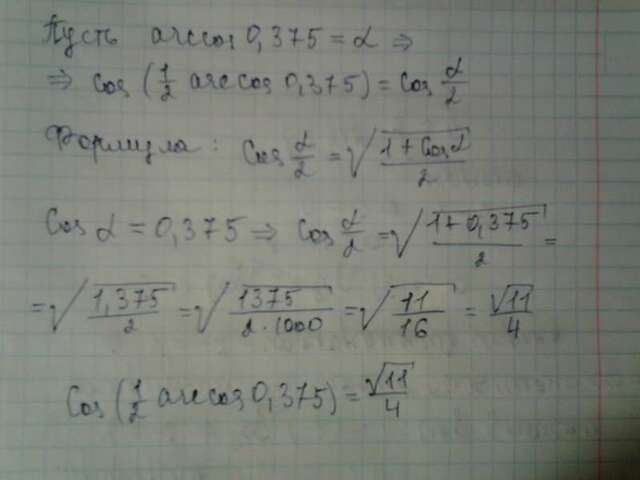 Пусть arccos 0,375 = α ⇒
⇒ cos (1/2 arccos 0,375) = cos α/2
Формула: cos α/2 = √((1 + cos α)/2)
Cos α = 0,375 ⇒ cos α/2 = √((1 + 0,375)/2) =
= √(1,375/2) = √(1375/(2·1000)) = √(11/16) = √11/4
Cos (1/2 arccos 0,375) = √11/4